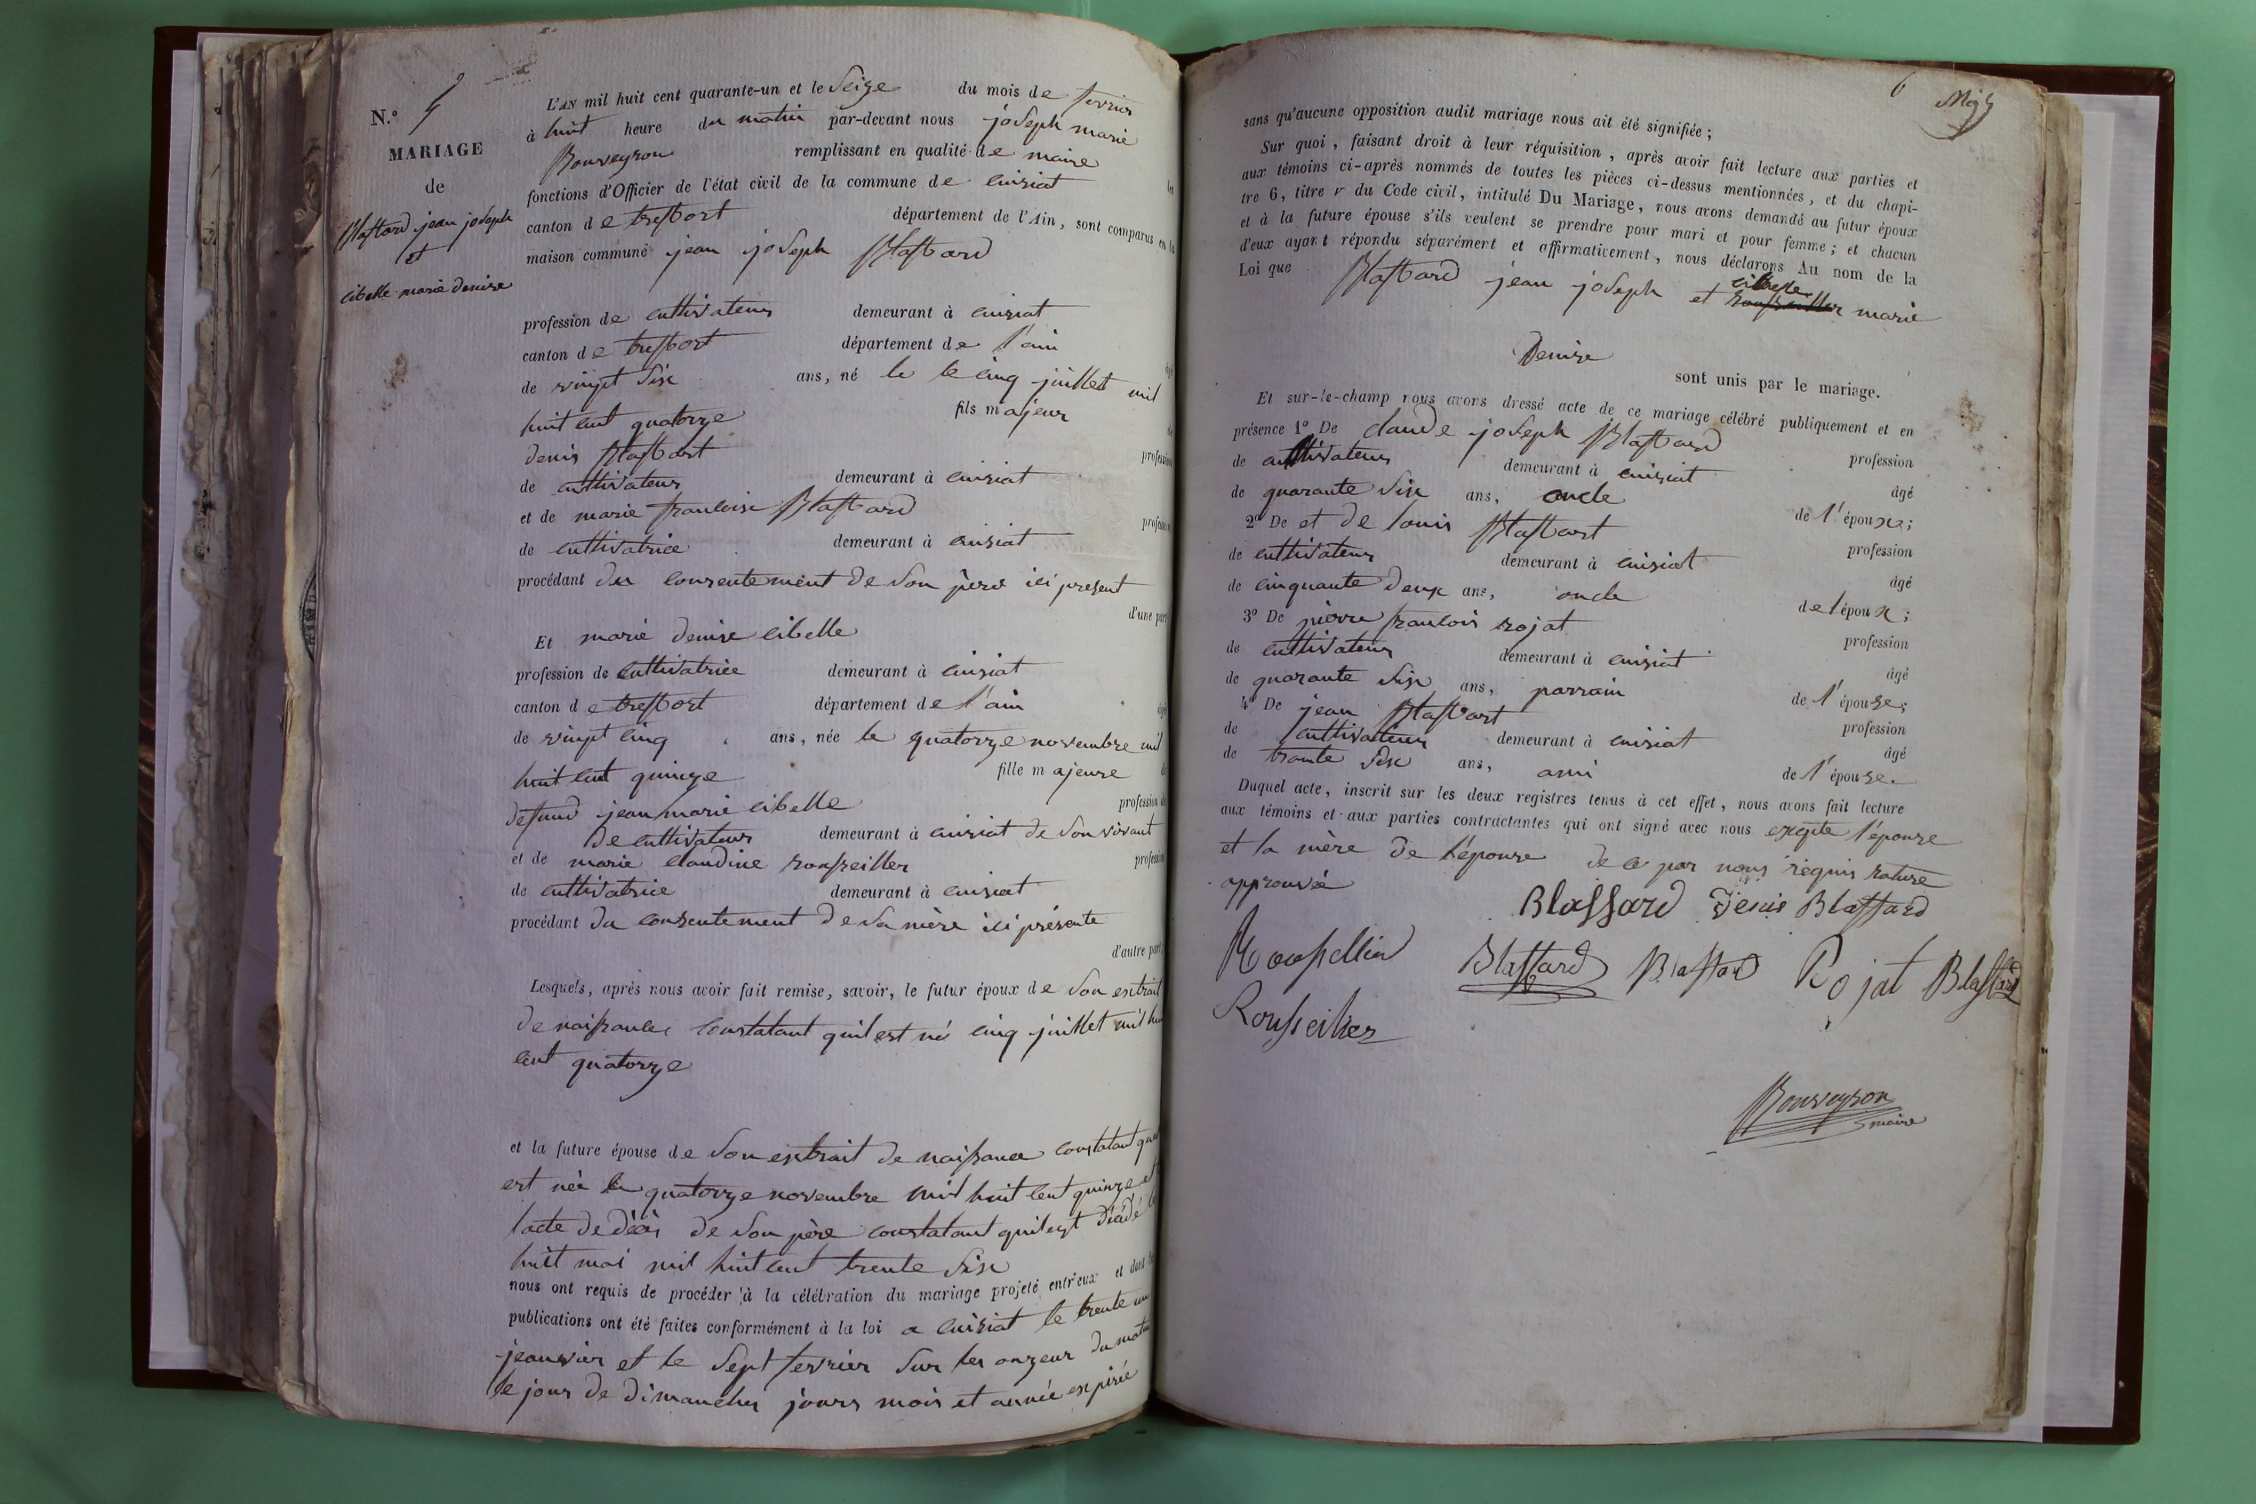 N.° 4
MARIAGE
de
Blassard jean joseph
et
cibelle marie denise
L'AN mil huit cent quarante-un et le seize du mois de fevrier
à huit heure du matin par-devant nous joseph marie
Bouveyron remplissant en qualité de maire les
fonctions d'Officier de l'état civil de la commune de cuisiat
canton de treffort département de l'Ain, sont comparus en la
maison commune jean joseph Blassard
profession de cultivateur demeurant à cuisiat
canton de treffort département de l'ain
de vingt six ans, né le le cinq juillet mil âgé
huit cent quatorze fils majeur de
denis Blassart profession
de cultivateur demeurant à cuisiat
et de marie francoise Blassard profession
de cultivatrice demeurant à cuisiat
procédant du consentement de son père ici present
d'une part
Et marie denise cibelle
profession de cultivatrice demeurant à cuisiat
canton de treffort département de l'ain âgé
de vingt cinq ans, née le quatorze novembre mil
huit cent quinze fille majeure de
defunt jean marie cibelle profession de
De cultivateur demeurant à cuisiat de son vivant
et de marie claudine rousseiller profession
de cultivatrice demeurant à cuisiat
procédant du consentement de sa mère ici présente
d'autre part;
Lesquels, après nous avoir fait remise, savoir, le futur époux de son extrait
de naissance constatant quil est né cinq juillet mil hui
cent quatorze
et la future épouse de son extrait de naissance constatant quel
est née le quatorze novembre mil huit cent quinze et
lacte de décès de son père constatant quil est décédé le
huit mai mil huit cent trente six
nous ont requis de procéder à la célébration du mariage projeté entr'eux et dont les
publications ont été faites conformément à la loi a cuisiat le trente un
jeanvier et le sept fevrier sur les onzeur du matin
le jour de dimanches jours mois et année expirée
6
sans qu'aucune opposition audit mariage nous ait été signifiée;
Sur quoi, faisant droit à leur réquisition, après avoir fait lecture aux parties et
aux témoins ci-après nommés de toutes les pièces ci-dessus mentionnées, et du chapi-
tre 6, titre v du Code civil, intitulé Du Mariage, nous avons demandé au futur époux
et à la future épouse s'ils veulent se prendre pour mari et pour femme; et chacun
d'eux ayant répondu séparément et affirmativement, nous déclarons Au nom de la
Loi que Blassard jean joseph et cibelle rousseiller marie
Denise
sont unis par le mariage.
Et sur-le-champ nous avons dressé acte de ce mariage célébré publiquement et en
présence 1° De claude joseph Blassard profession
de cultivateur demeurant à cuisiat âgé
de quarante six ans, oncle de l'époux;
2° De et de louis Blassart profession
de cultivateur demeurant à cuisiat âgé
de cinquante deux ans, oncle de l'époux;
3° De pierre francois rojat profession
de cultivateur demeurant à cuisiat âgé
de quarante six ans, parrain de l'épouse;
4° De jean Blassart profession
de cultivateur demeurant à cuisiat âgé
de trante six ans, ami de l'épouse.
Duquel acte, inscrit sur les deux registres tenus à cet effet, nous avons fait lecture
aux témoins et aux parties contractantes qui ont signé avec nous exepte l'épouse
et la mère de l'épouse de ce par nous requis rature
approuvée
Blassard Denis Blassard
Blassard Blassard Rojat Blassard
Rousseiller
Bouveyron
maire